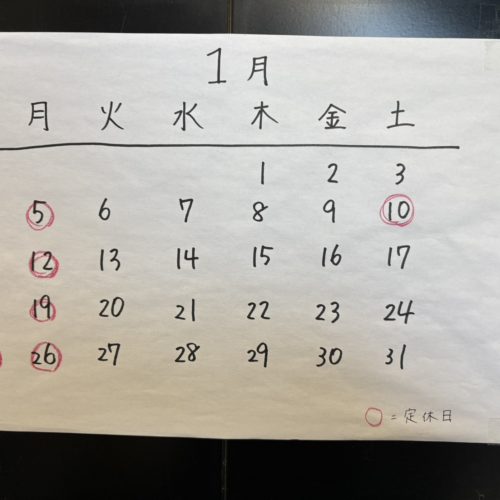 1月
月 火 水 木 金 土
1 2 3
5 6 7 8 9 10
12 13 14 15 16 17
19 20 21 22 23 24
26 27 28 29 30 31
○ = 定休日